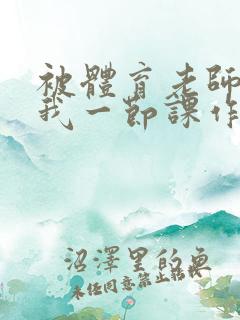 被體育老師
我一節課作
沼澤里的魚
未经同意禁止转载